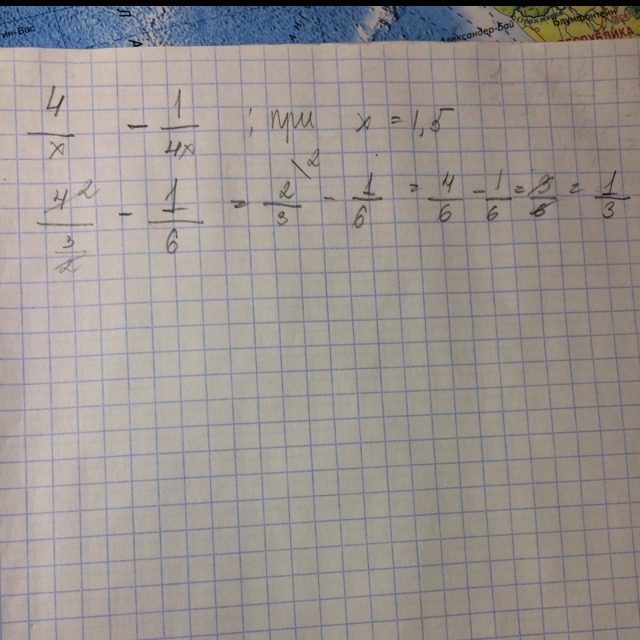 Александер-Бай
БЛИКА
4/x - 1/4x ; при x = 1,5
4²/(3/2) - 1/6 = 2/3\² - 1/6 = 4/6 - 1/6 = 3/6 = 1/3